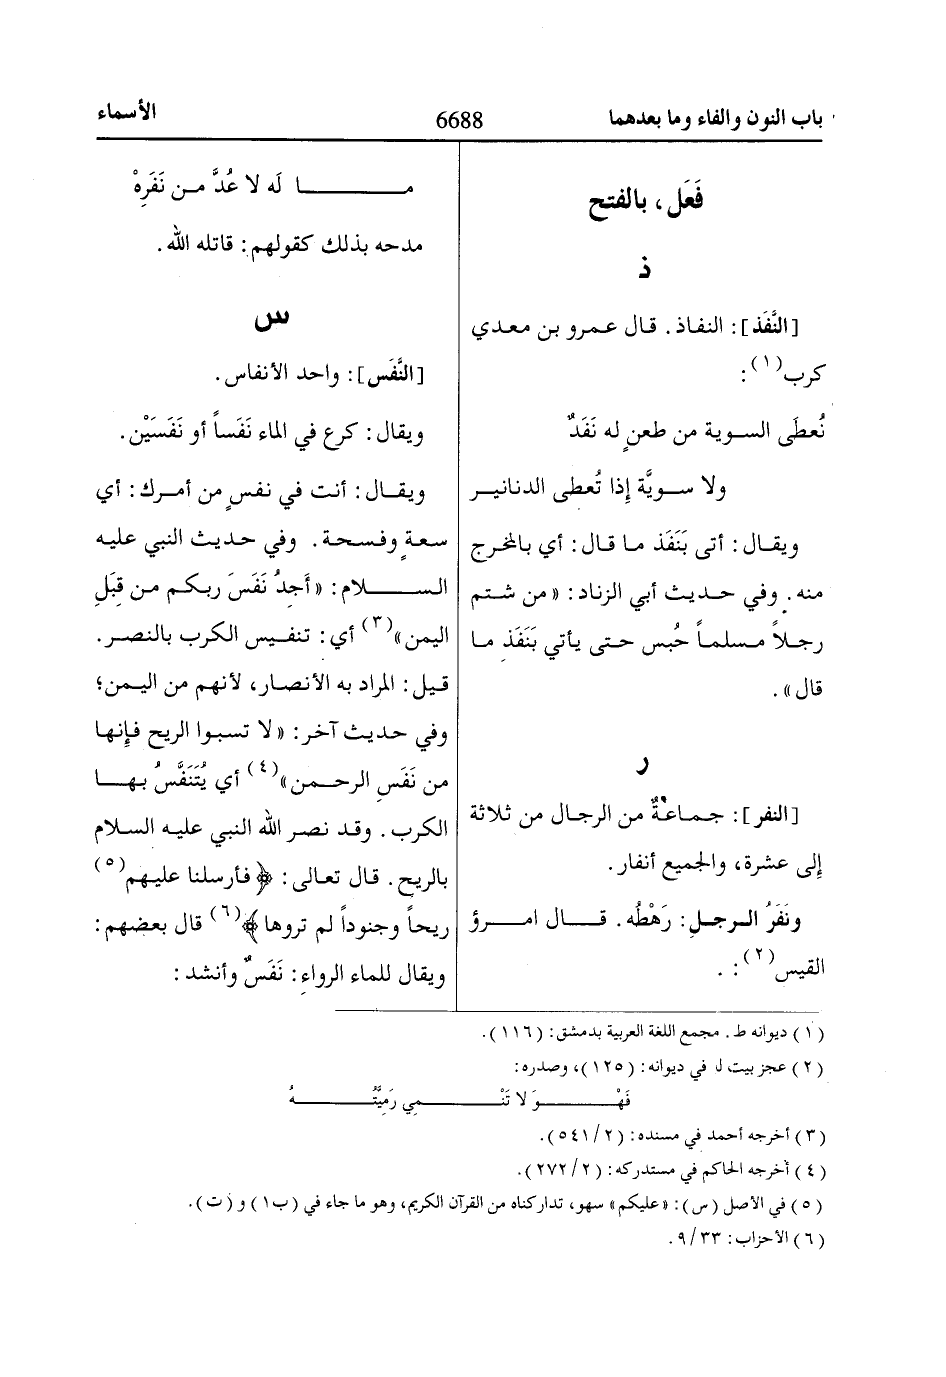 باب النون والفاء وما بعدهما 6688 الأسماء
فَعَل، بالفتح
ذ
[النَّفَذ]: النفاذ. قال عمرو بن معدي
كرب(١):
نُعطَى السوية من طعنٍ له نَفَذٌ
ولا سويَّة إذا تُعطى الدنانير
ويقال: أتى بَنَفَذ ما قال: أي بالمخرج
منه. وفي حديث أبي الزناد: «من شتم
رجلاً مسلماً حُبس حتى يأتي بَنَفَذِ ما
قال».
ر
[النفر]: جماعةٌ من الرجال من ثلاثة
إلى عشرة، والجميع أنفار.
ونَفَرُ الرجلِ: رَهْطُه. قال امرؤ
القيس(٢):
ما لَه لا عُدَّ من نَفَرِهْ
مدحه بذلك كقولهم: قاتله الله.
س
[النَّفَس]: واحد الأنفاس.
ويقال: كرع في الماء نَفَساً أو نَفَسَيْن.
ويقال: أنت في نفسٍ من أمرك: أي
سعةٍ وفسحة. وفي حديث النبي عليه
السلام: «أَجدُ نَفَسَ ربكم من قِبَلِ
اليمن»(٣) أي: تنفيس الكرب بالنصر.
قيل: المراد به الأنصار، لأنهم من اليمن؛
وفي حديث آخر: «لا تسبوا الريح فإنها
من نَفَسِ الرحمن»(٤) أي يُتَنَفَّسُ بها
الكرب. وقد نصر الله النبي عليه السلام
بالريح. قال تعالى: ﴿فأرسلنا عليهم(٥)
ريحاً وجنوداً لم تروها﴾(٦) قال بعضهم:
ويقال للماء الرواء: نَفَسٌ وأنشد:
(١) ديوانه ط. مجمع اللغة العربية بدمشق: (١١٦).
(٢) عجز بيت له في ديوانه: (١٢٥)، وصدره:
فَهْوَ لا تَنْمِي رَمِيَّتُهُ
(٣) أخرجه أحمد في مسنده: (٥٤١/٢).
(٤) أخرجه الحاكم في مستدركه: (٢٧٢/٢).
(٥) في الأصل (س): «عليكم» سهو، تداركناه من القرآن الكريم، وهو ما جاء في (ب١) و(ت).
(٦) الأحزاب: ٩/٣٣.